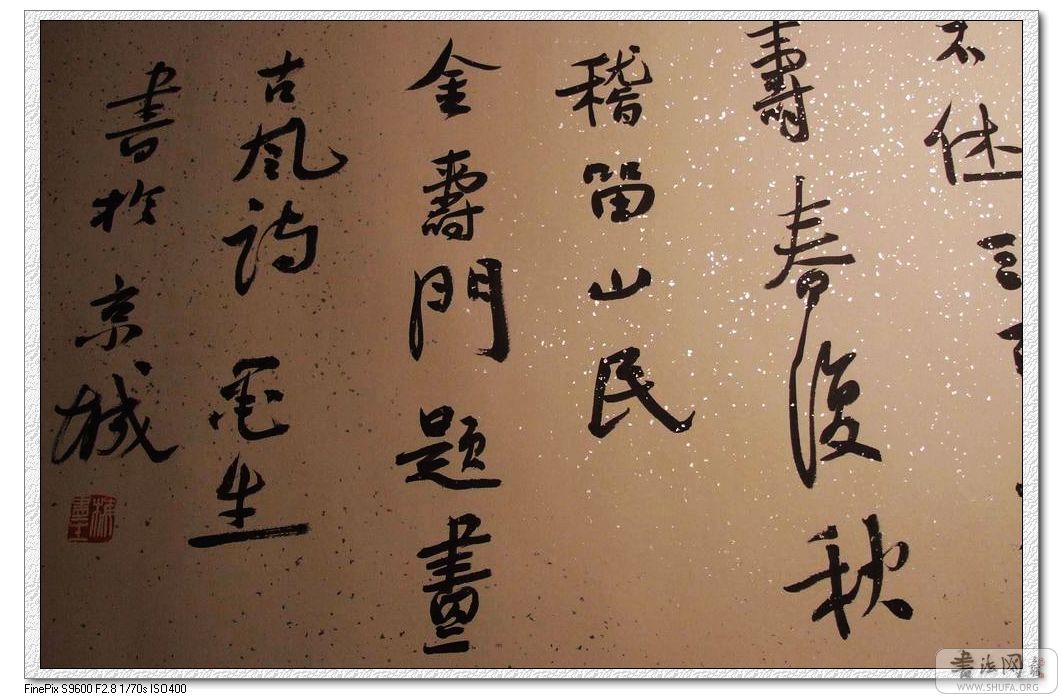 不休三
壽春復秋
稽留山民
金壽門題畫
古風詩 墨生
書於京城
梅墨生
書法网
WWW.SHUFA.ORG
FinePix S9600 F2.8 1/70s ISO400